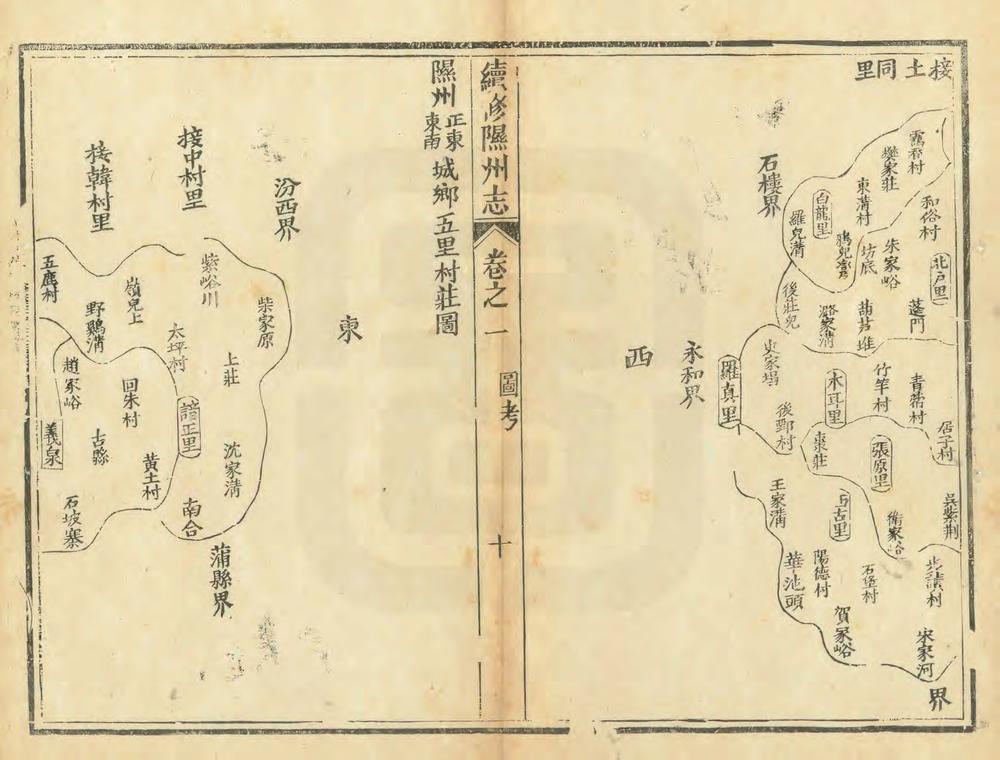 接土同里
靄石村
樊家莊
東溝村
白龍里
羅兒溝
和俗村
朱家峪
坊底
鴉兒灣
北戸里
蓬門
葫芦堆
潞家溝
後莊兒
石樓界
史家塌
青帶村
竹竿村
木耳里
後鄄村
羅真里
永和界
西
居子村
張原里
棗莊
王家溝
吳紫荆
衛家峪
古里
陽德村
石堡村
華池頭
賀家峪
步讀村
宋家河
界
續修隰州志
卷之一
圖考
十
隰州
正東
東南
城鄉五里村莊圖
東
汾西界
接中村里
接韓村里
紫峪川
柴家原
嶺兒上
五鹿村
野鷄溝
太坪村
上莊
趙家峪
回朱村
諧正里
義泉
古縣
黄土村
沈家溝
石坡寨
南合
蒲縣界